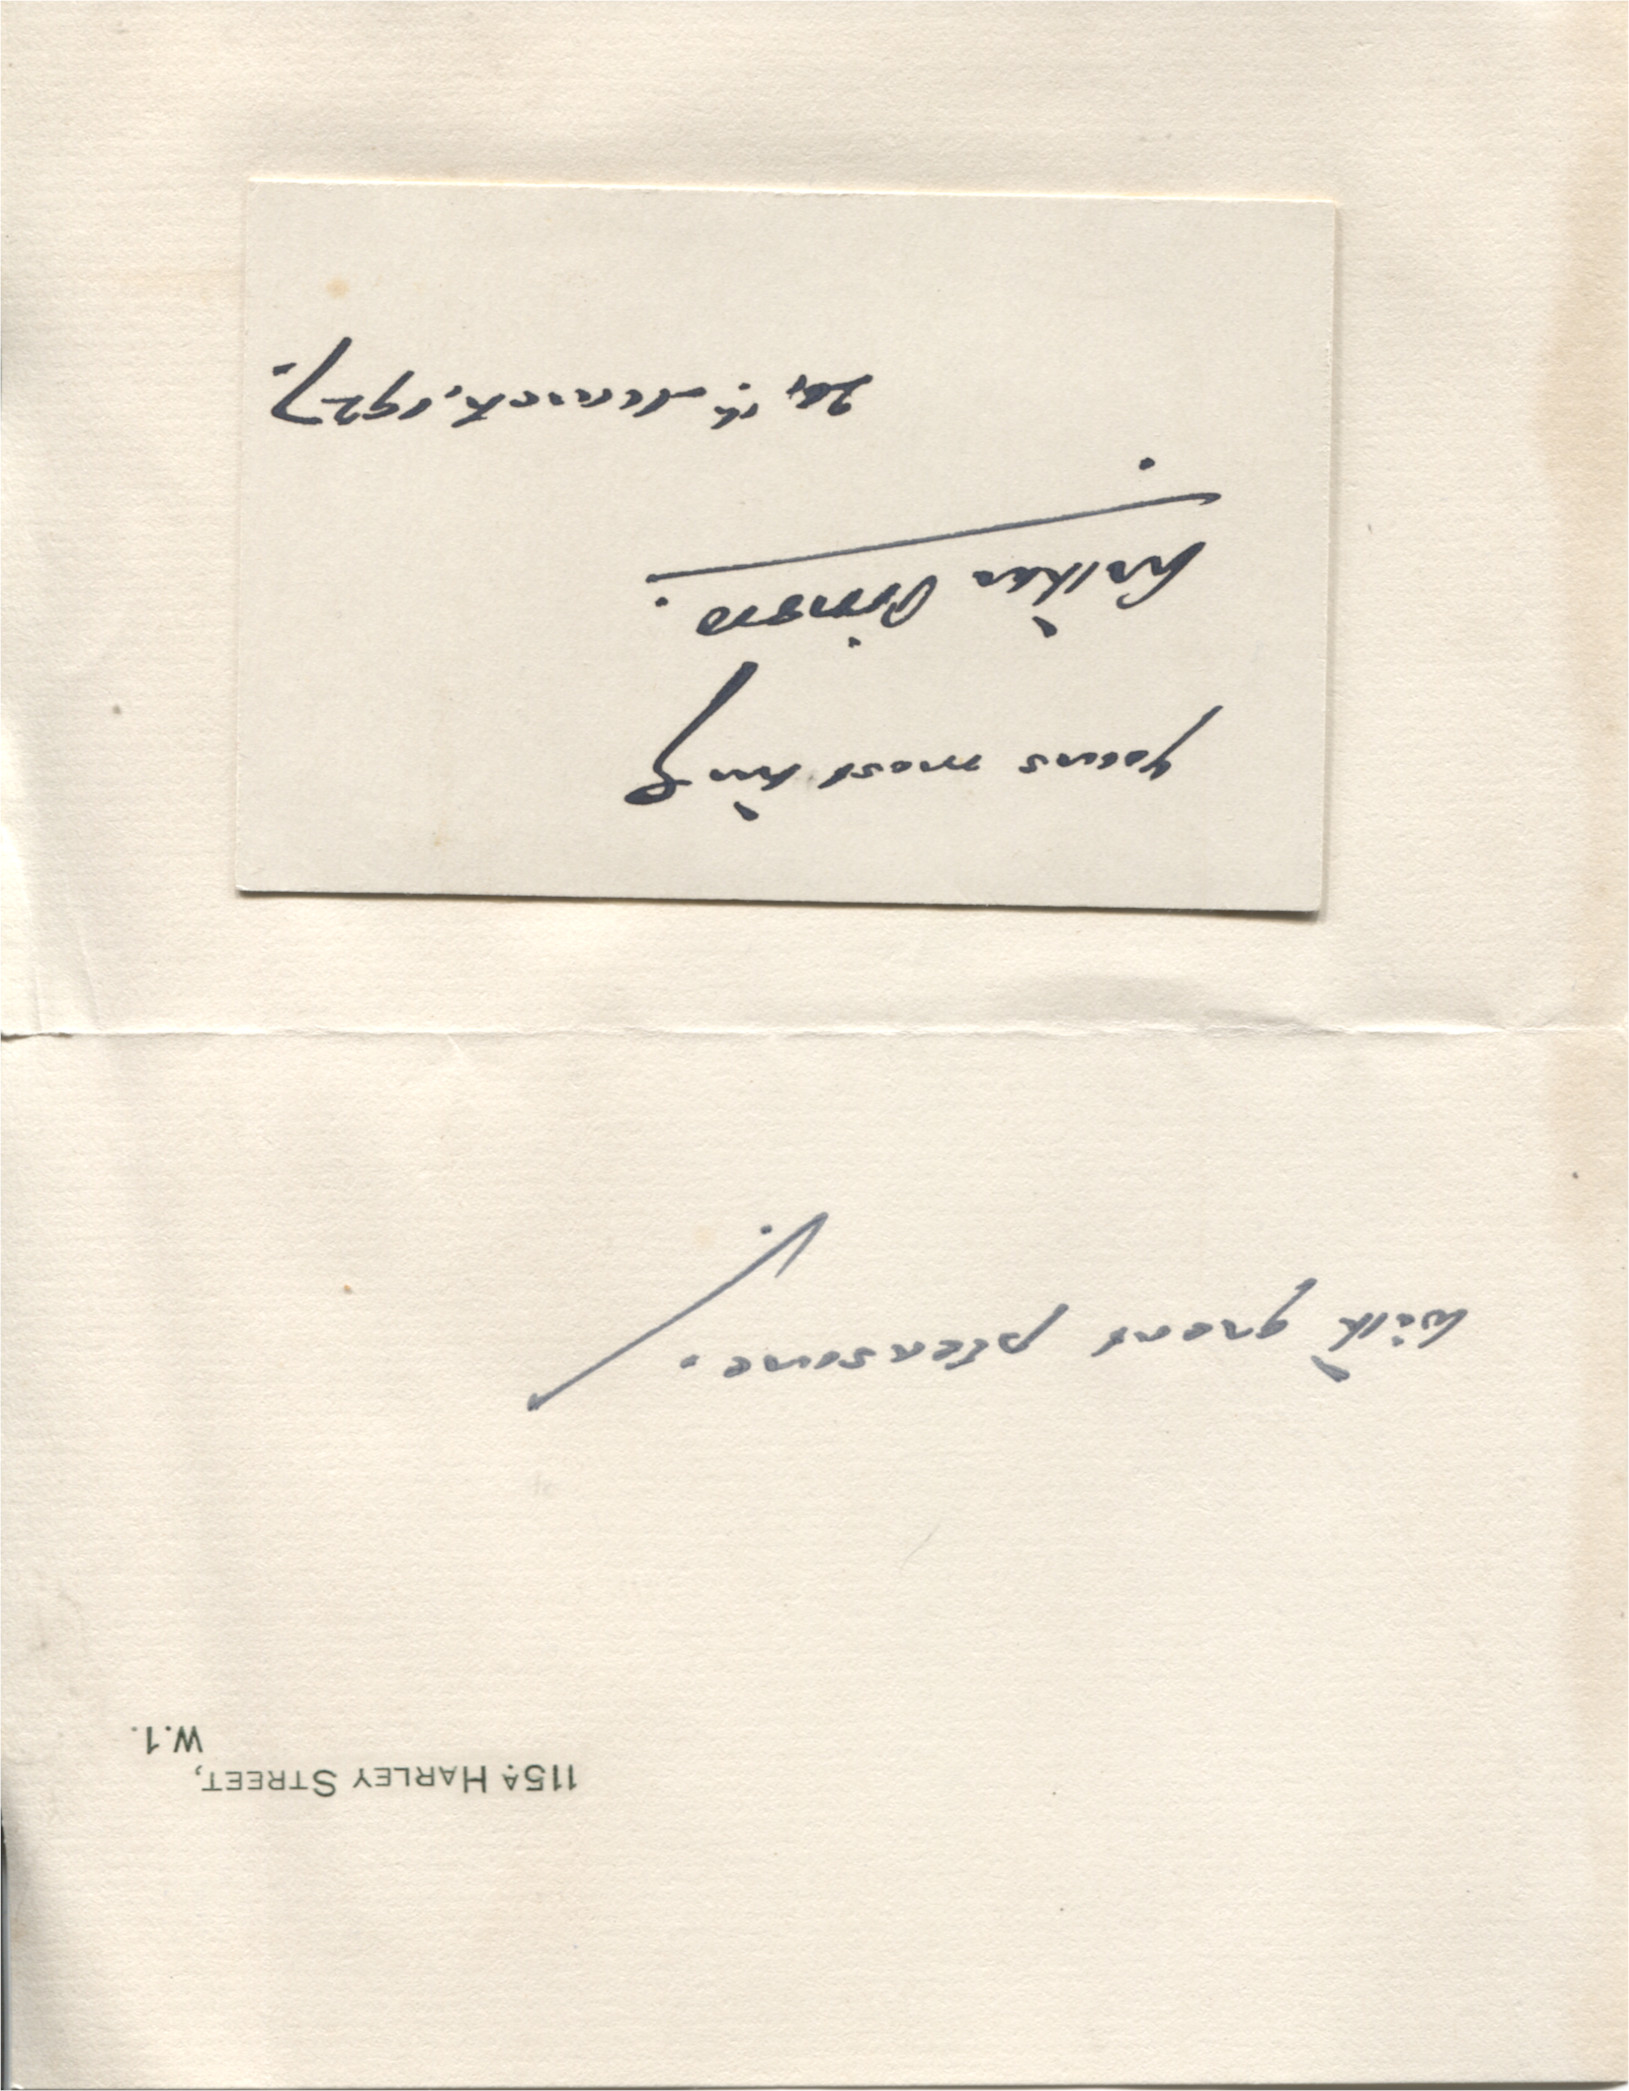 115A HARLEY STREET,
W.1.
With great pleasure.
Yours most truly
Arthur Pinero.
March, 1927.